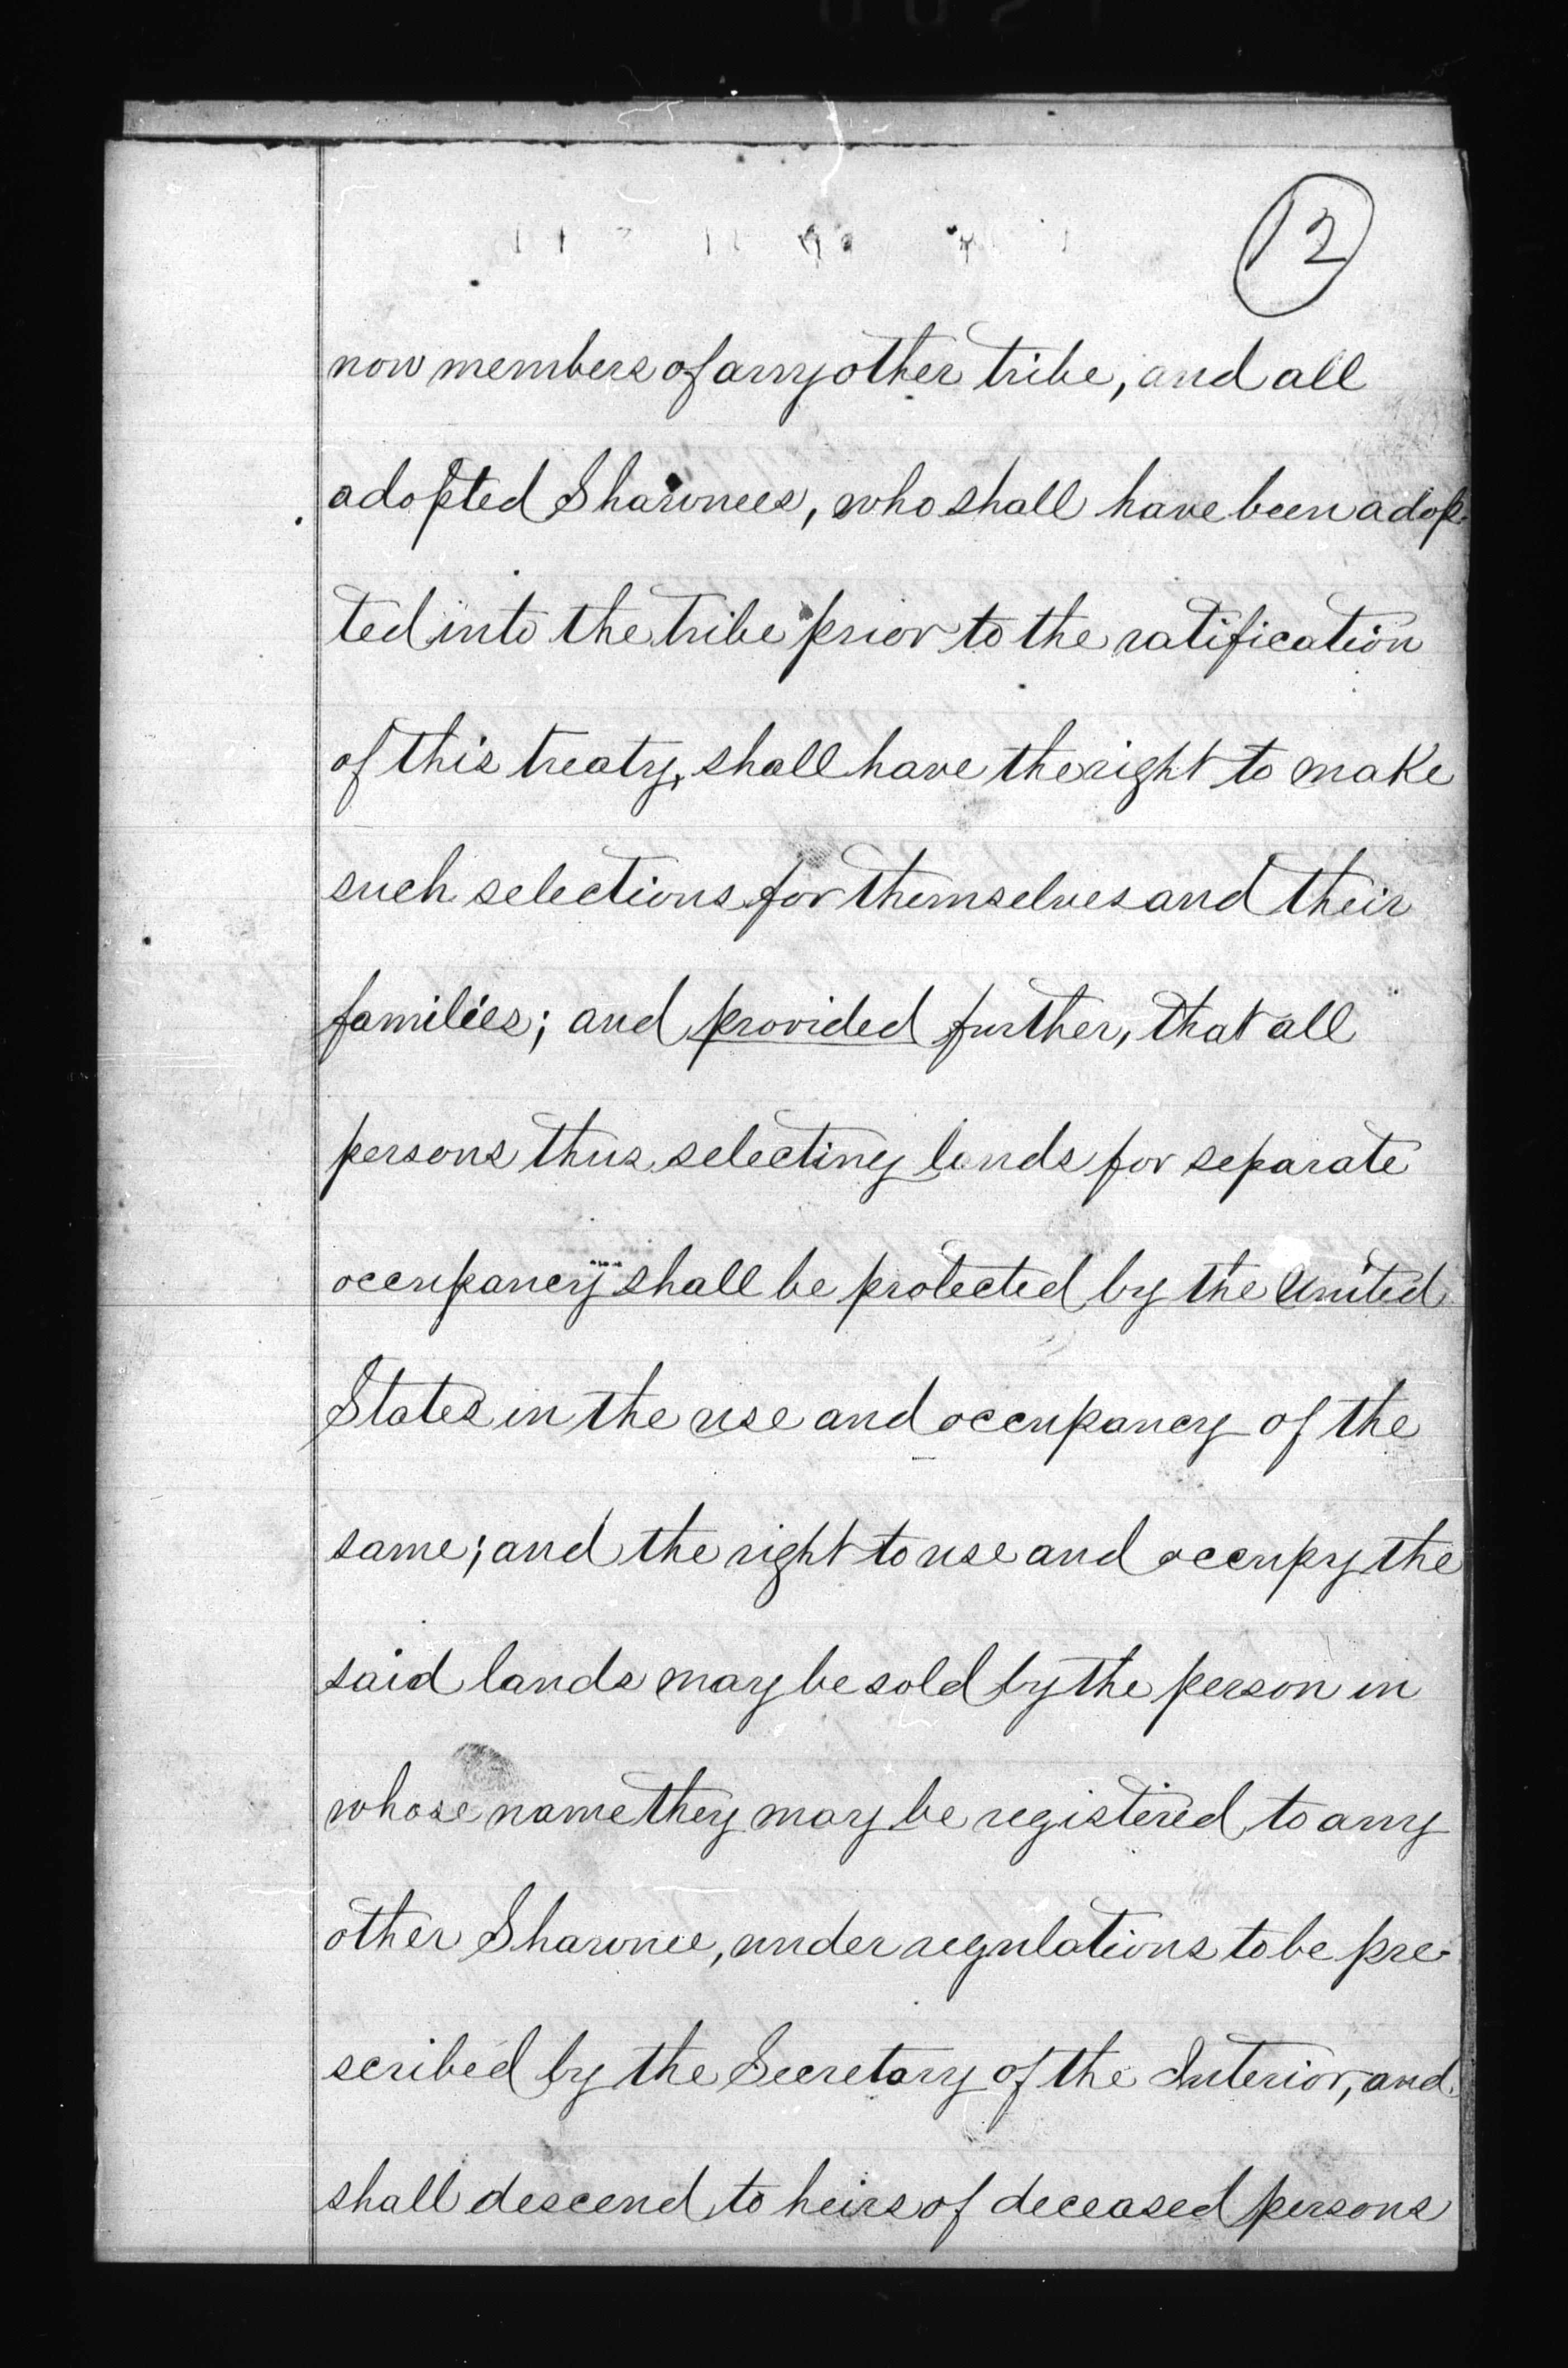 12
now members of any other tribe, and all
adopted Shawnees, who shall have been adop-
ted into the tribe prior to the ratification
of this treaty, shall have the right to make
such selections for themselves and their
families; and provided further, that all
persons thus selecting lands for separate
occupancy shall be protected by the United
States in the use and occupancy of the
same; and the right to use and occupy the
said lands may be sold by the person in
whose name they may be registered to any
other Shawnee, under regulations to be pre-
scribed by the Secretary of the Interior, and
shall descend to heirs of deceased persons